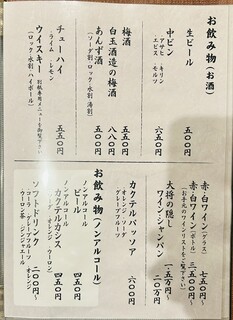 お飲み物(お酒)
生ビール 五五〇円
中ビン 六五〇円
アサヒ・キリン
エビス・モルツ
梅酒 五五〇円
白玉酒造の梅酒 八八〇円
あんず酒 五五〇円
(ソーダ割・ロック・水割・湯割)
チューハイ 五五〇円
・ライム・レモン
ウイスキー
(ロック・水割・ハイボール)
赤・白ワイン(グラス) 七五〇円〜
赤・白ワイン(ボトル) 三、五〇〇円〜
大将の隠し
ワイン・シャンパン 一・五万〜二〇万円
カクテルパッソア 六〇〇円
オレンジ・ソーダ
グレープフルーツ
お飲み物(ノンアルコール)
ノンアルコール
ビール 四五〇円
ノンアルコール
カクテルカシス 四五〇円
ソフトドリンク 二〇〇円〜
コーラ・グレープフルーツ
ウーロン茶・ジンジャエール